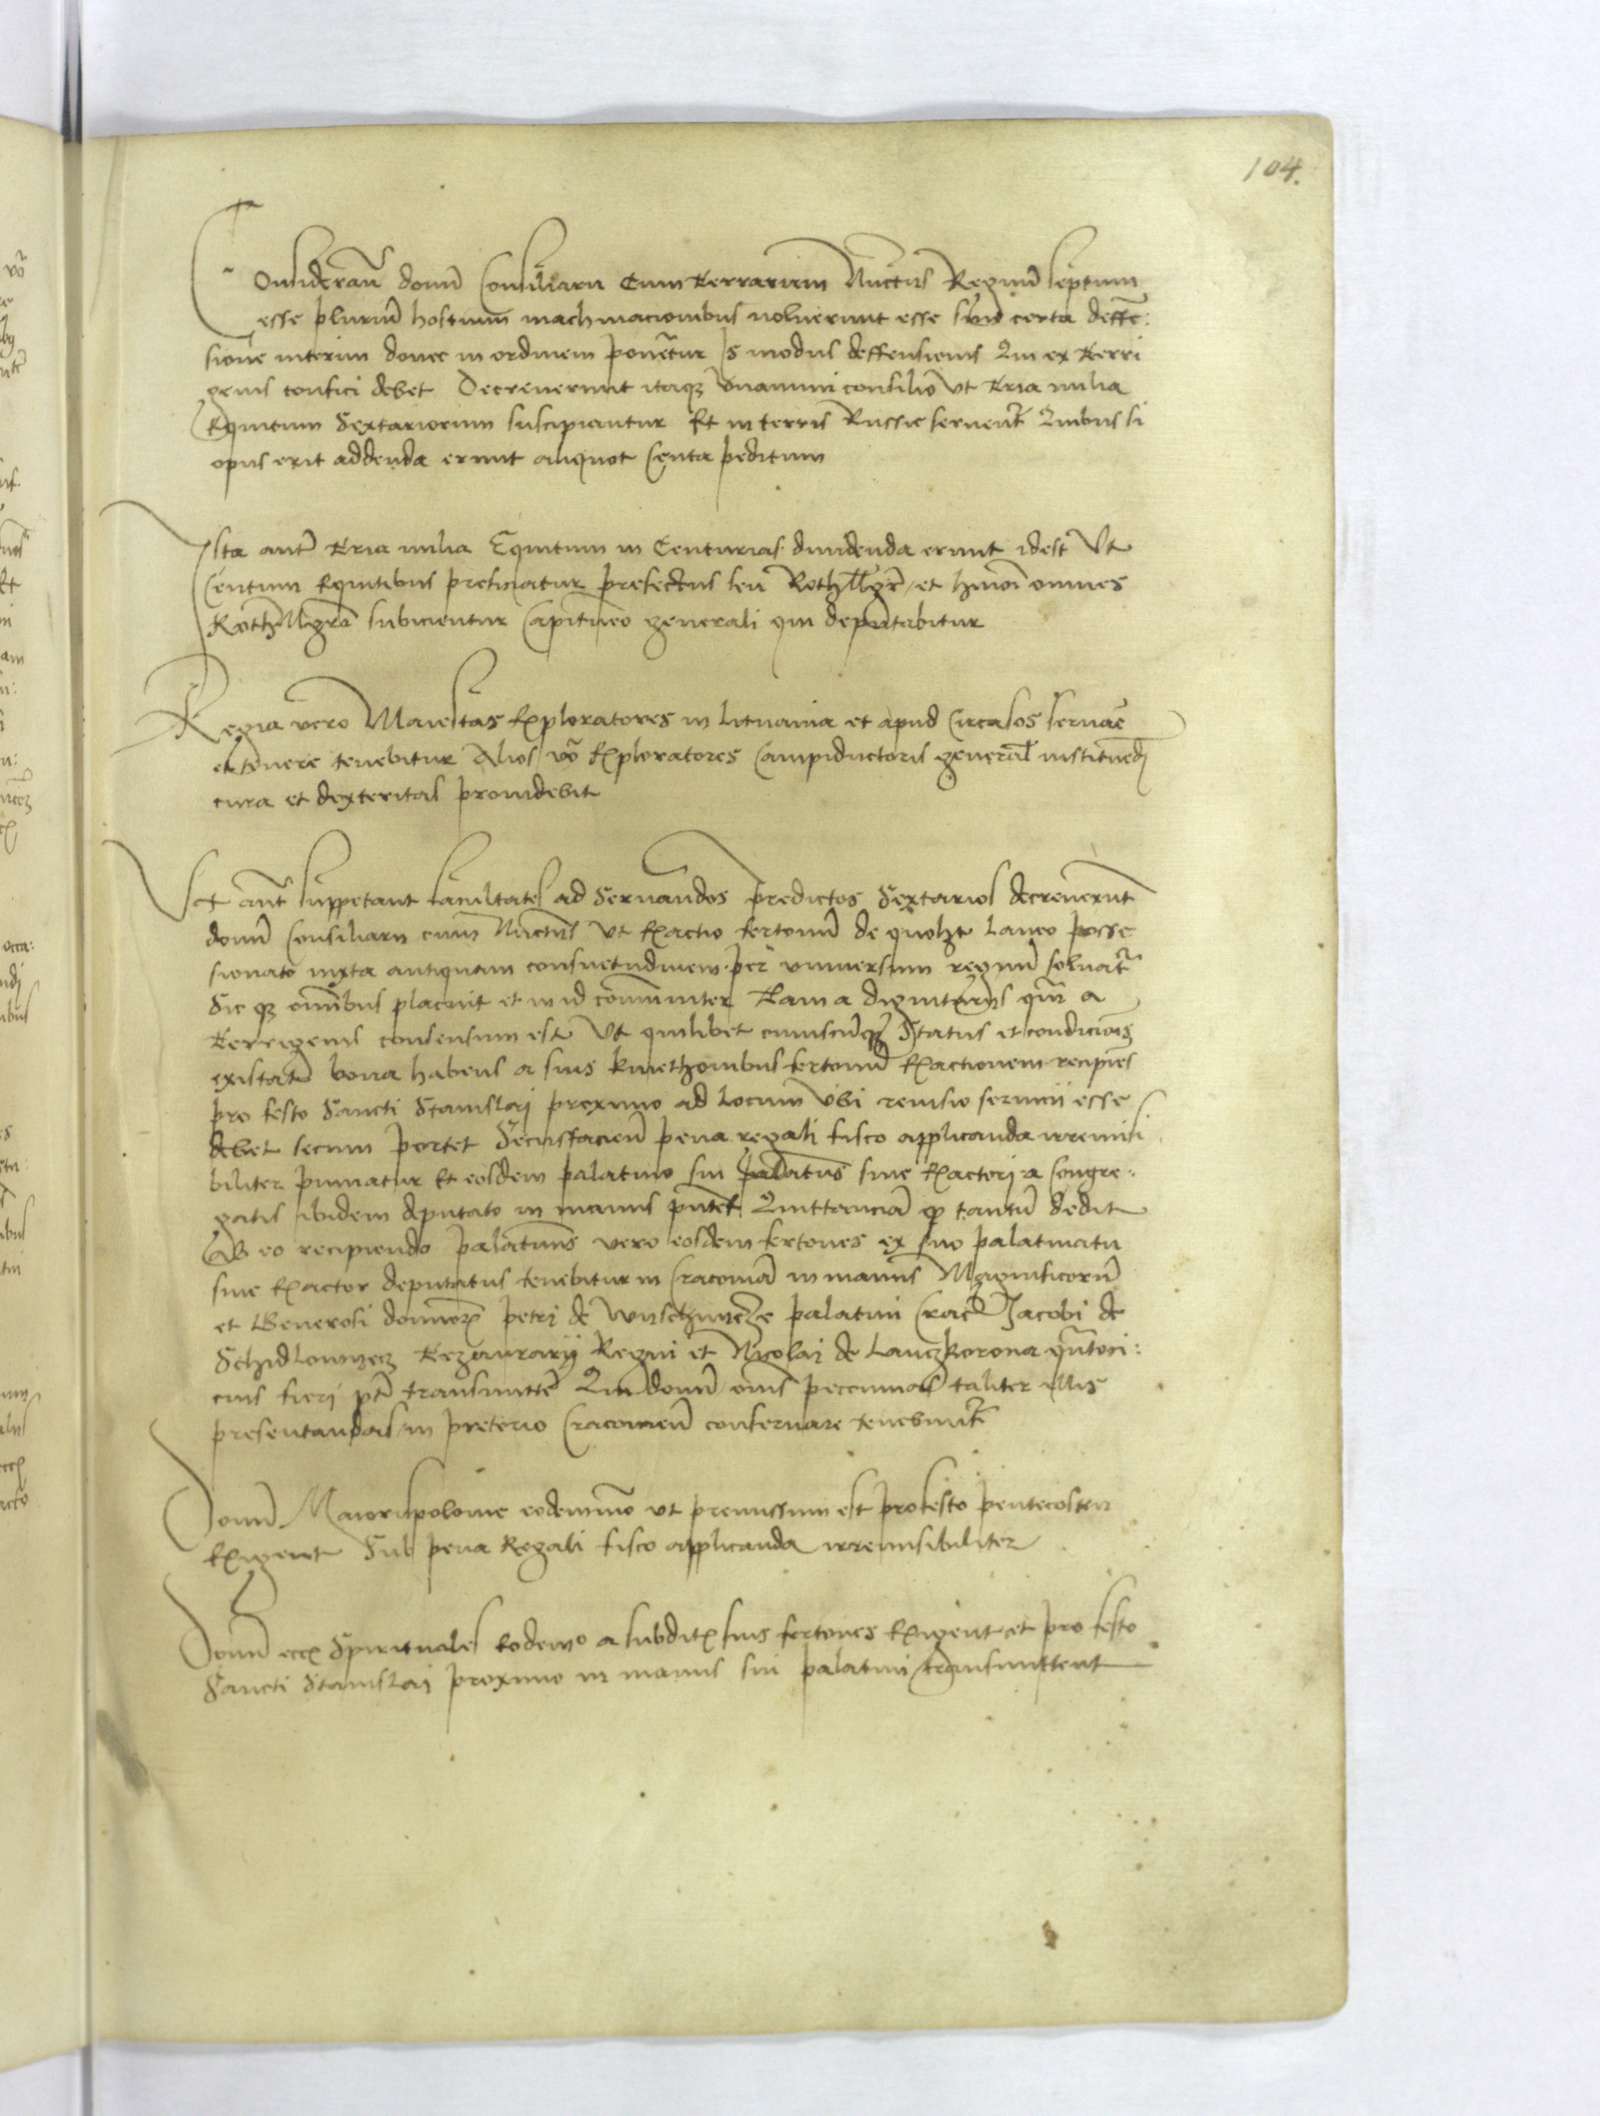 104.
Considerañ domī Consiliarii Cum terrarum Nuctiis Regnū septum
esse plurimū hostium machinacionibus noluerunt esse sine certa deffe:
sione interim donec in ordinem ponetur Is modus deffensionis Qui ex terri
genis confici debet Decreverunt itaqz unanimi consilio Ut tria milia
Equitum Sextariorum suscipiantur Et in terris Russie servent Quibus si
opus erit addenda erunt aliquot Centa peditum
Ista autē tria milia Equitum in Centurias dividenda erunt idest Ut
Centum Equitibus preficiatur prefectus seu Rothmgr̄ et hmōi omnes
Rothmgrī subicientur Capitaneo generali qui deputabitur
Regia vero Maiestas Exploratores in Lituania et apud Circasos servare
et tenere tenebitur Alios vō Exploratores Campiductoris general instituēdi
cura et dexteritas providebit
Ut autē suppetant facultates ad Servandos predictos Sextarios decreverunt
domī Consiliarii cum Nuctiis Ut Exactio fertonū de quolzt Laneo posse
sionato iuxta antiquam consuetudinem per universum regnū solvat̄
Sic qz omībus placuit et in id comūniter Tam a dignitariis quā a
terrigenis consensum est Ut quilibet cuiuscūqz Status et condicionis
existat bona habens a suis kmethonibus fertonū Exactionem recipiēs
pro festo Sancti Stanislai proximo ad locum Ubi revisio servicii esse
debet secum portet Secusfacieñ pena regali fisco applicanda irremisi
biliter puniatur Et eosdem palatino sui palatūs sive Exactori a Congre:
gatis ibidem deputato in manus pñtet Quittanciā qz tantū dedit
Ab eo recipiendo palatinus vero eosdem fertones ex suo palatinatu
sive Exactor deputatus tenebitur in Cracoviā in manus Magnificorū
et Generosi domorz petri de Wnschmcze palatini Crac Jacobi de
Schidlowyecz Tezaurarii Regni et Nicolai de Lanczkorona quātoci:
cius fieri ptī transmitte Qui domī omīs peccunias taliter illis
presentandas in pretorio Cracovieñ conservare tenebunt̄
Domī Maiorispolonie eodemmō ut premissum est pro festo pentecosten
Exigent Sub pena Regali fisco applicanda irremisibiliter
Domī ecī Spirituales Eodemo a subditis suis fertones Exigent et pro festo
Sancti Stanislai proximo in manus sui palatini transmittent